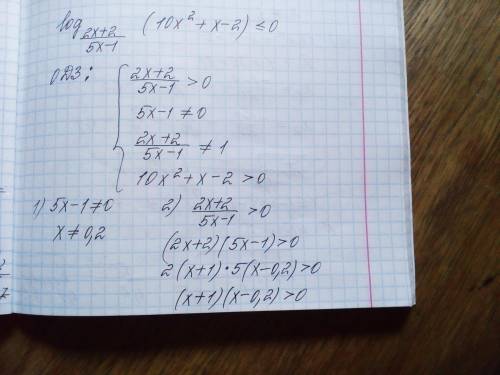 log_{\frac{2x+2}{5x-1}} (10x² + x - 2) ≤ 0
ОДЗ: { \frac{2x+2}{5x-1} > 0
5x-1 ≠ 0
\frac{2x+2}{5x-1} ≠ 1
10x² + x - 2 > 0
1) 5x-1 ≠ 0
x ≠ 0,2
2) \frac{2x+2}{5x-1} > 0
(2x+2)(5x-1) > 0
2(x+1)·5(x-0,2) > 0
(x+1)(x-0,2) > 0